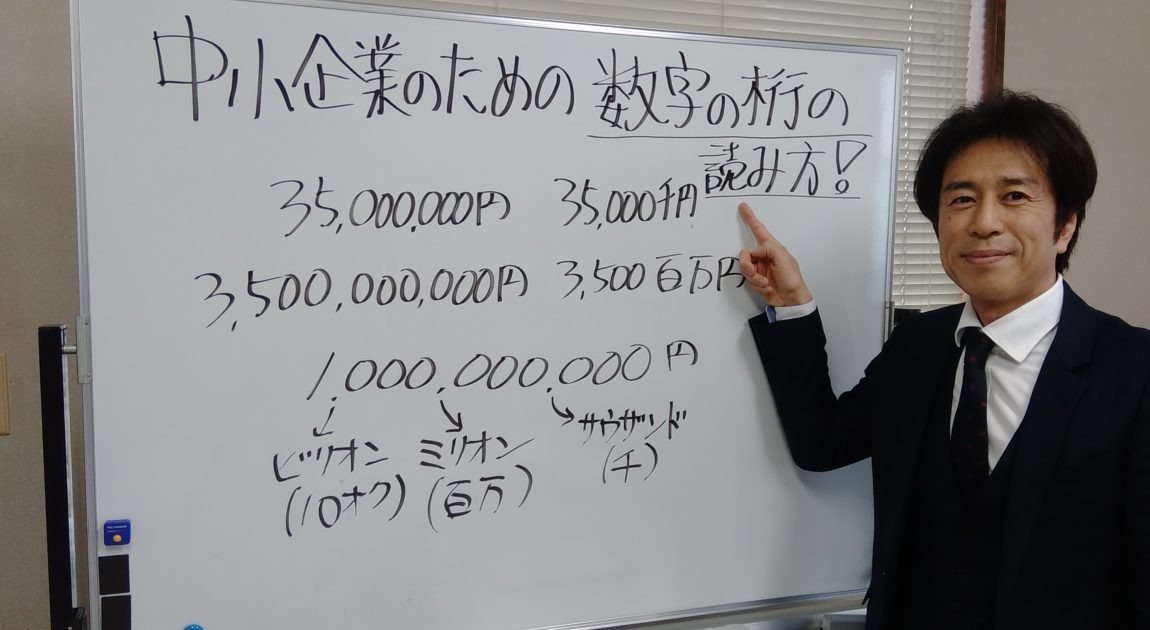 中小企業のための数字の桁の
読み方!
35,000,000円 35,000千円
3,500,000,000円 3,500百万円
1,000,000,000円
ビリオン ミリオン サウザンド
(10オク) (百万) (千)